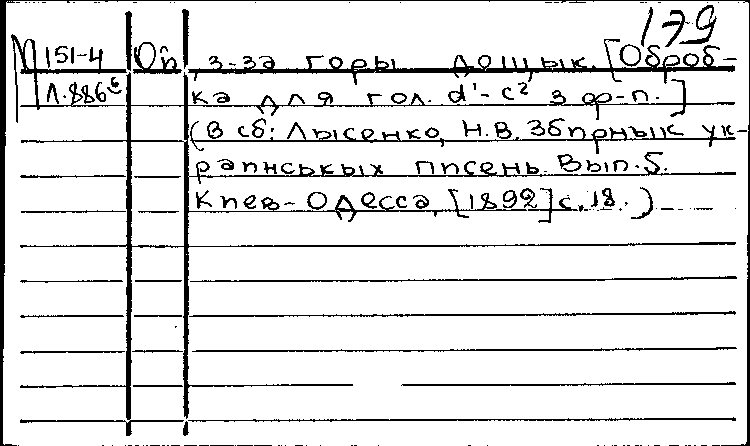 179
М 151-4 Ой, з-за горы дощык. [Оброб-
Л.886 ка для гол. d¹-c² з ф-п.]
(В сб: Лысенко, Н.В. Збирнык ук-
раинськых писень. Вып. 5.
Киев-Одесса, [1892] с. 18.)